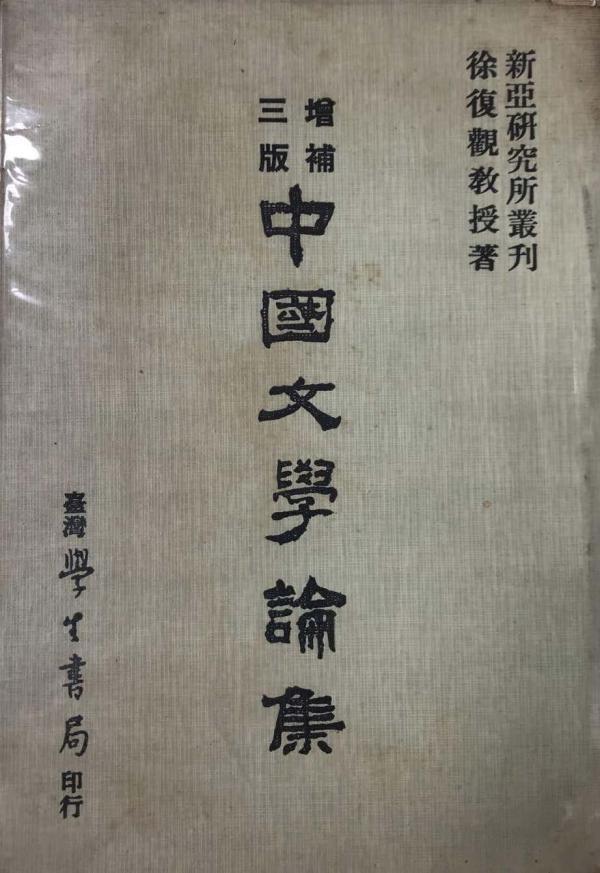 新亞硏究所叢刊
徐復觀教授著
增補
三版
中國文學論集
臺灣學生書局印行